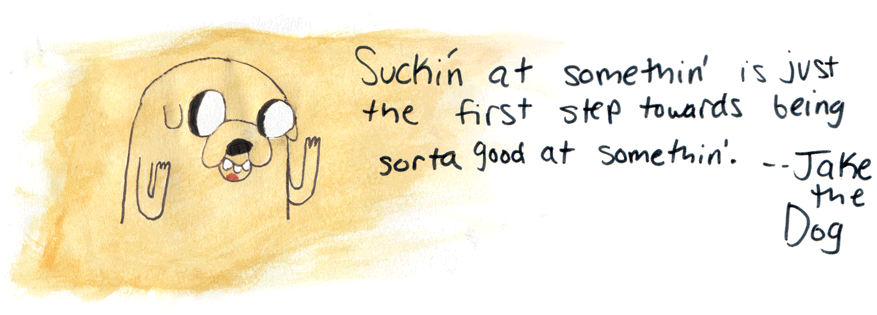 Suckin' at somethin' is just
the first step towards being
sorta good at somethin'. --Jake
the
Dog